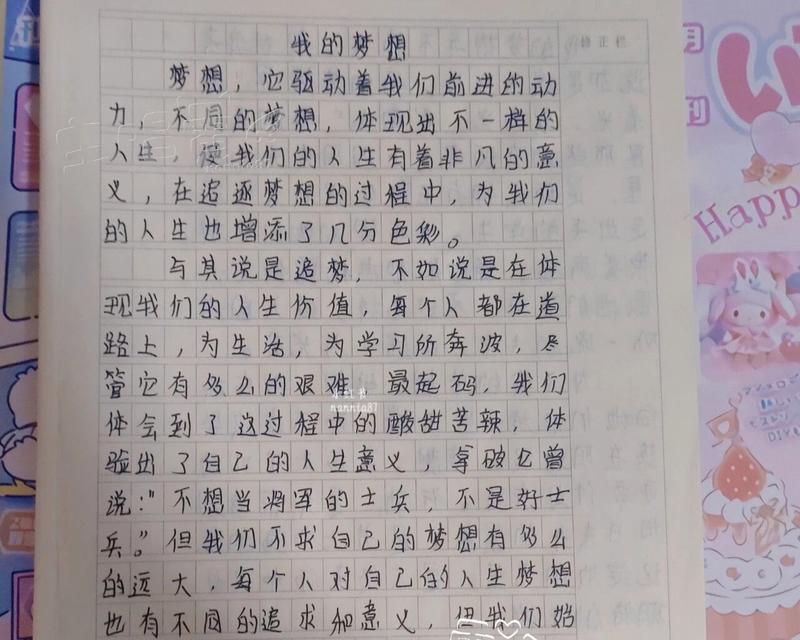 我的梦想
修正栏
梦想，它驱动着我们前进的动
力，不同的梦想，体现出不一样的
人生，使我们的人生有着非凡的意
义，在追逐梦想的过程中，为我们
的人生也增添了几分色彩。
与其说是追梦，不如说是在体
现我们的人生价值，每个人都在道
路上，为生活，为学习所奔波，尽
管它有多么的艰难，最起码，我们
体会到了这过程中的酸甜苦辣，体
验出了自己的人生意义，拿破仑曾
说:"不想当将军的士兵，不是好士
兵。"但我们不求自己的梦想有多么
的远大，每个人对自己的人生梦想
也有不同的追求和意义，但我们始
小红书
nannia87
月
刊
Happ